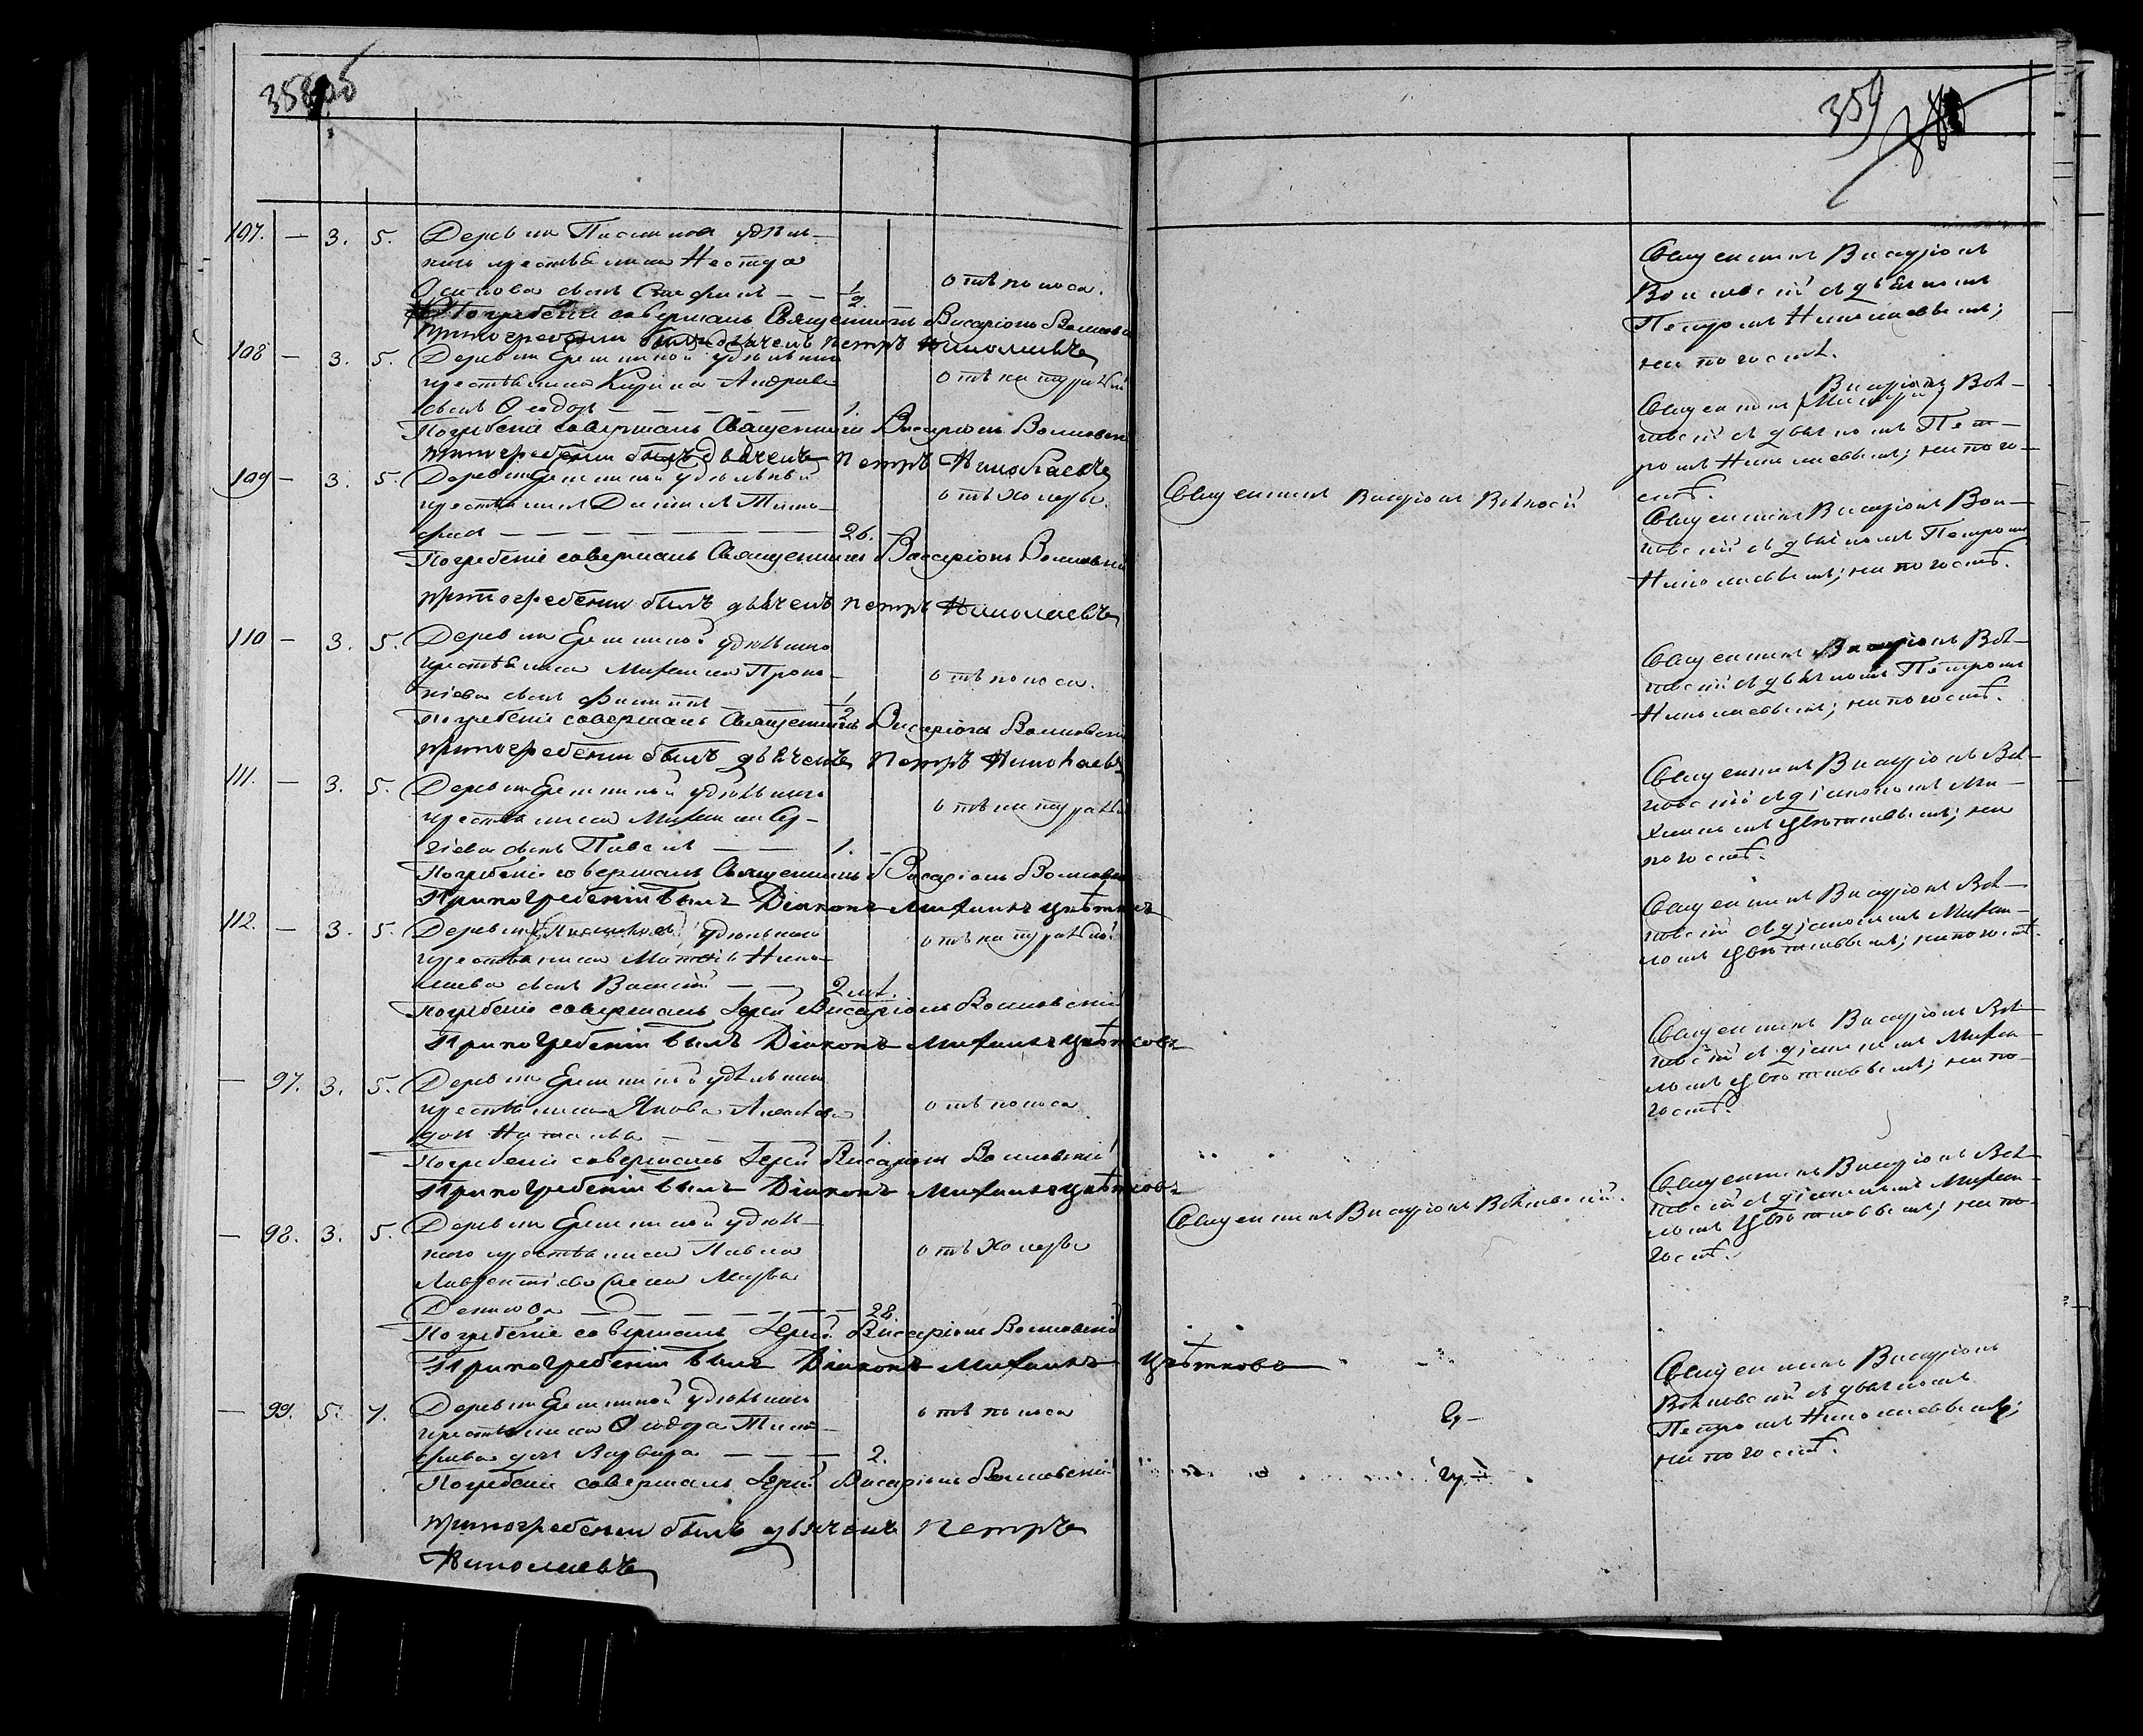 358
359
107. — 3. 5. Деревни Писцова удѣль-
наго крестьянина Нестера
Осипова сынъ Стефанъ — — 1/2. отъ поноса.
Погребеніе совершалъ Священникъ Висаріонъ Волковскій
при погребеніи былъ дьячекъ Петръ Николаевъ
Священникъ Висаріонъ
Волковскій съ дьячкомъ
Петромъ Николаевымъ;
на погостѣ.
108 — 3. 5. Деревни Ерениной удѣльнаго
крестьянина Кирила Андреева
сынъ Ѳеодоръ — — — — 1. отъ натуральной
Погребеніе совершалъ Священникъ Висаріонъ Волковскій
при погребеніи былъ дьячекъ Петръ Николаевъ
Священникъ Висаріонъ Вол-
ковскій съ дьячкомъ Пет-
ромъ Николаевымъ; на пого-
стѣ.
109 — 3. 5. Деревни Ерениной удѣльный
крестьянинъ Даніилъ Тимо-
феевъ — — — — 26. отъ холеры.
Погребеніе совершалъ Священникъ Виссаріонъ Волковскій
при погребеніи былъ дьячекъ Петръ Николаевъ
Священникъ Висаріонъ Волковскій
Священникъ Висаріонъ Вол-
ковскій съ дьячкомъ Петромъ
Николаевымъ; на погостѣ.
110 — 3. 5. Деревни Ерениной удѣльнаго
крестьянина Михаила Проко-
піева сынъ Филиппъ — — 1/2 отъ поноса.
Погребеніе совершалъ Священникъ Висаріонъ Волковскій
при погребеніи былъ дьячекъ Петръ Николаевъ
Священникъ Висаріонъ Вол-
ковскій съ дьячкомъ Петромъ
Николаевымъ; на погостѣ.
111. — 3. 5. Деревни Ерениной удѣльнаго
крестьянина Михаила Сер-
гіева сынъ Павелъ — — 1. отъ натуральной
Погребеніе совершалъ Священникъ Висаріонъ Волковскій
При погребеніи былъ Діаконъ Михаилъ Цвѣтковъ
Священникъ Висаріонъ Вол-
ковскій съ діакономъ Ми-
хаиломъ Цвѣтковымъ; на
погостѣ.
112. — 3. 5. Деревни Писцова удѣльнаго
крестьянина Матвѣя Нико-
лаева сынъ Василій — — 2 лѣт. отъ натуральной
Погребеніе совершалъ Іерей Висаріонъ Волковскій
При погребеніи былъ Діаконъ Михаилъ Цвѣтковъ
Священникъ Висаріонъ Вол-
ковскій съ діакономъ Михаи-
ломъ Цвѣтковымъ; на погостѣ.
— 97. 3. 5. Деревни Ерениной удѣльнаго
крестьянина Якова Алексѣева
дочь Наталья — — 1. отъ поноса
Погребеніе совершалъ Іерей Висаріонъ Волковскій
При погребеніи былъ Діаконъ Михаилъ Цвѣтковъ
Священникъ Висаріонъ Вол-
ковскій съ діакономъ Михаи-
ломъ Цвѣтковымъ; на по-
гостѣ.
— 98. 3. 5. Деревни Ерениной удѣль-
наго крестьянина Павла
Лаврентіева жена Марѳа
Денисова — — — — 28. отъ холеры
Погребеніе совершалъ Іерей Висаріонъ Волковскій
При погребеніи былъ Діаконъ Михаилъ Цвѣтковъ
Священникъ Висаріонъ Волковскій.
Священникъ Висаріонъ Вол-
ковскій съ діакономъ Михаи-
ломъ Цвѣтковымъ; на по-
гостѣ.
— 99. 5. 7. Деревни Ерениной удѣльнаго
крестьянина Ѳеодора Тимо-
феева дочь Варвара — — — 2. отъ поноса
Погребеніе совершалъ Іерей Висаріонъ Волковскій
при погребеніи былъ дьячекъ Петръ
Николаевъ
Священникъ Висаріонъ
Волковскій съ дьячкомъ
Петромъ Николаевымъ;
на погостѣ.